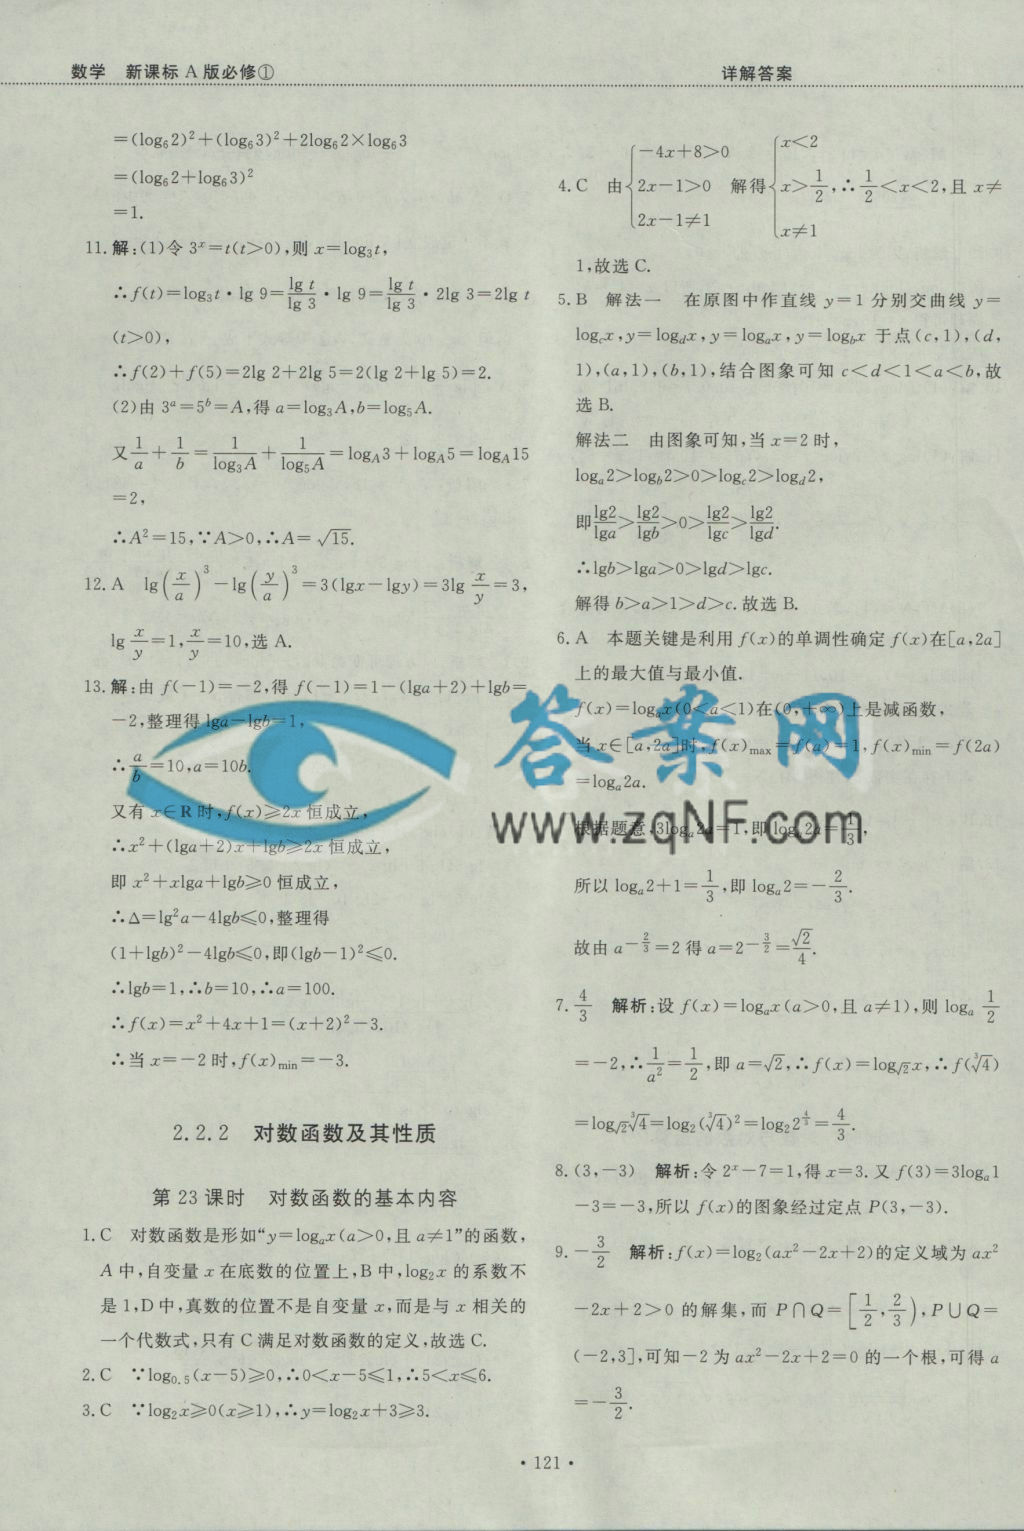 数学 新课标 A 版必修① 详解答案
=(log₆2)²+(log₆3)²+2log₆2×log₆3
=(log₆2+log₆3)²
=1.
11.解:(1)令 3ˣ=t(t>0),则 x=log₃t,
∴f(t)=log₃t·lg 9=(lg t/lg 3)·lg 9=(lg t/lg 3)·2lg 3=2lg t
(t>0),
∴f(2)+f(5)=2lg 2+2lg 5=2(lg 2+lg 5)=2.
(2)由 3ᵃ=5ᵇ=A,得 a=log₃A,b=log₅A.
又 1/a+1/b=1/log₃A+1/log₅A=log_A 3+log_A 5=log_A 15
=2,
∴A²=15,∵A>0,∴A=√15.
12.A lg(x/a)³-lg(y/a)³=3(lgx-lgy)=3lg x/y=3,
lg x/y=1,x/y=10,选 A.
13.解:由 f(-1)=-2,得 f(-1)=1-(lga+2)+lgb=
-2,整理得 lga-lgb=1,
∴a/b=10,a=10b.
又有 x∈R 时,f(x)≥2x 恒成立,
∴x²+(lga+2)x+lgb≥2x 恒成立,
即 x²+xlga+lgb≥0 恒成立,
∴Δ=lg²a-4lgb≤0,整理得
(1+lgb)²-4lgb≤0,即(lgb-1)²≤0.
∴lgb=1,∴b=10,∴a=100.
∴f(x)=x²+4x+1=(x+2)²-3.
∴当 x=-2 时,f(x)min=-3.
2.2.2 对数函数及其性质
第 23 课时 对数函数的基本内容
1.C 对数函数是形如“y=logₐx(a>0,且 a≠1”的函数,
A 中,自变量 x 在底数的位置上,B 中,log₂x 的系数不
是 1,D 中,真数的位置不是自变量 x,而是与 x 相关的
一个代数式,只有 C 满足对数函数的定义,故选 C.
2.C ∵log₀.₅(x-5)≥0,∴0<x-5≤1,∴5<x≤6.
3.C ∵log₂x≥0(x≥1),∴y=log₂x+3≥3.
4.C 由{-4x+8>0 2x-1>0 2x-1≠1 解得{x<2 x>1/2 x≠1,∴1/2<x<2,且 x≠
1,故选 C.
5.B 解法一 在原图中作直线 y=1 分别交曲线 y=
log_c x,y=log_d x,y=logₐx,y=log_b x 于点(c,1),(d,
1),(a,1),(b,1),结合图象可知 c<d<1<a<b,故
选 B.
解法二 由图象可知,当 x=2 时,
logₐ2>log_b 2>0>log_c 2>log_d 2,
即 lg2/lga>lg2/lgb>0>lg2/lgc>lg2/lgd.
∴lgb>lga>0>lgd>lgc.
解得 b>a>1>d>c.故选 B.
6.A 本题关键是利用 f(x)的单调性确定 f(x)在[a,2a]
上的最大值与最小值.
f(x)=logₐx(0<a<1)在(0,+∞)上是减函数,
当 x∈[a,2a]时,f(x)max=f(a)=1,f(x)min=f(2a)
=logₐ2a.
根据题意,3logₐ2a=1,即 logₐ2a=1/3,
所以 logₐ2+1=1/3,即 logₐ2=-2/3.
故由 a^(-2/3)=2 得 a=2^(-3/2)=√2/4.
7.4/3 解析:设 f(x)=logₐx(a>0,且 a≠1),则 logₐ 1/2
=-2,∴1/a²=1/2,即 a=√2,∴f(x)=log_√2 x,∴f(∛4)
=log_√2 ∛4=log₂(∛4)²=log₂2^(4/3)=4/3.
8.(3,-3) 解析:令 2ˣ-7=1,得 x=3.又 f(3)=3logₐ1
-3=-3,所以 f(x)的图象经过定点 P(3,-3).
9.-3/2 解析:f(x)=log₂(ax²-2x+2)的定义域为 ax²
-2x+2>0 的解集,而 P∩Q=[1/2,2/3),P∪Q=
(-2,3],可知-2 为 ax²-2x+2=0 的一个根,可得 a
=-3/2.
答案网
www.zqNF.com
·121·